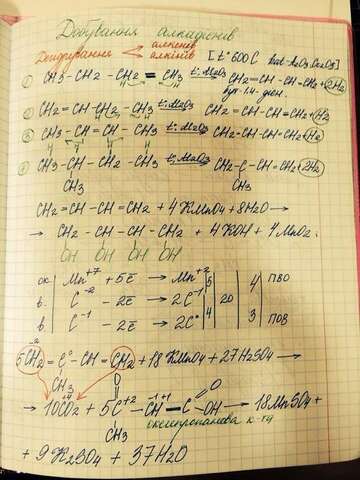 Добування алкадієнів
Дегидрування алкенів [t° 600 C kat - Al2O3, Cr2O3]
алкінів
① CH3-CH2-CH2=CH3 t°; Al2O3 CH2=CH-CH=CH2+2H2
бут-1,4-дієн.
② CH2=CH-CH2-CH3 CH2=CH-CH=CH2+H2
③ CH3-CH=CH-CH3 CH2=CH-CH=CH2+H2
④ CH3-CH-CH2-CH3 CH2-C-CH=CH2 2H2
CH3 CH3
CH2=CH-CH=CH2 + 4KMnO4+8H2O →
→ CH2-CH-CH-CH2 + 4KOH + 4MnO2.
OH OH OH OH
ок Mn+7 + 5e → Mn+2 5 4 ПВО
в. C-2 - 2e → 2C-1 20
в C-1 - 2e → 2C° 4 3 ПОВ
5CH2=C-CH=CH2+18KMnO4+27H2SO4 →
CH3 O O
→ 10CO2 + 5C+2-CH-C-OH → 18MnSO4+
CH3
+ 9K2SO4 + 37H2O